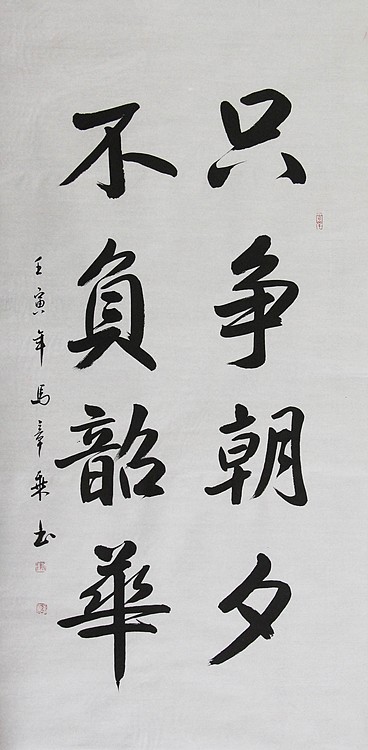 只争朝夕
不負韶華
壬寅年馬章乗书